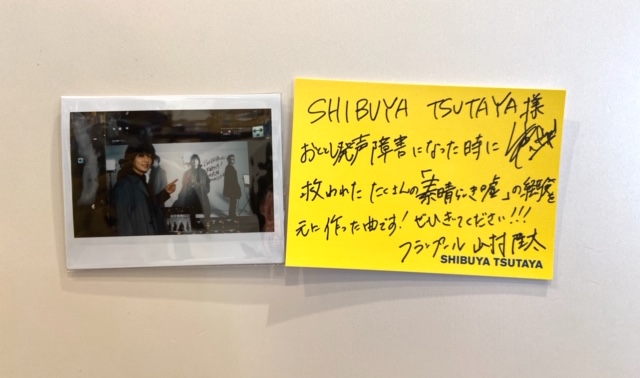 SHIBUYA TSUTAYA様
おととし発声障害になった時に
救われた たくさんの「素晴らしき嘘」の経験を
元に作った曲です! ぜひきいてください!!!
フランプール 山村隆太
SHIBUYA TSUTAYA